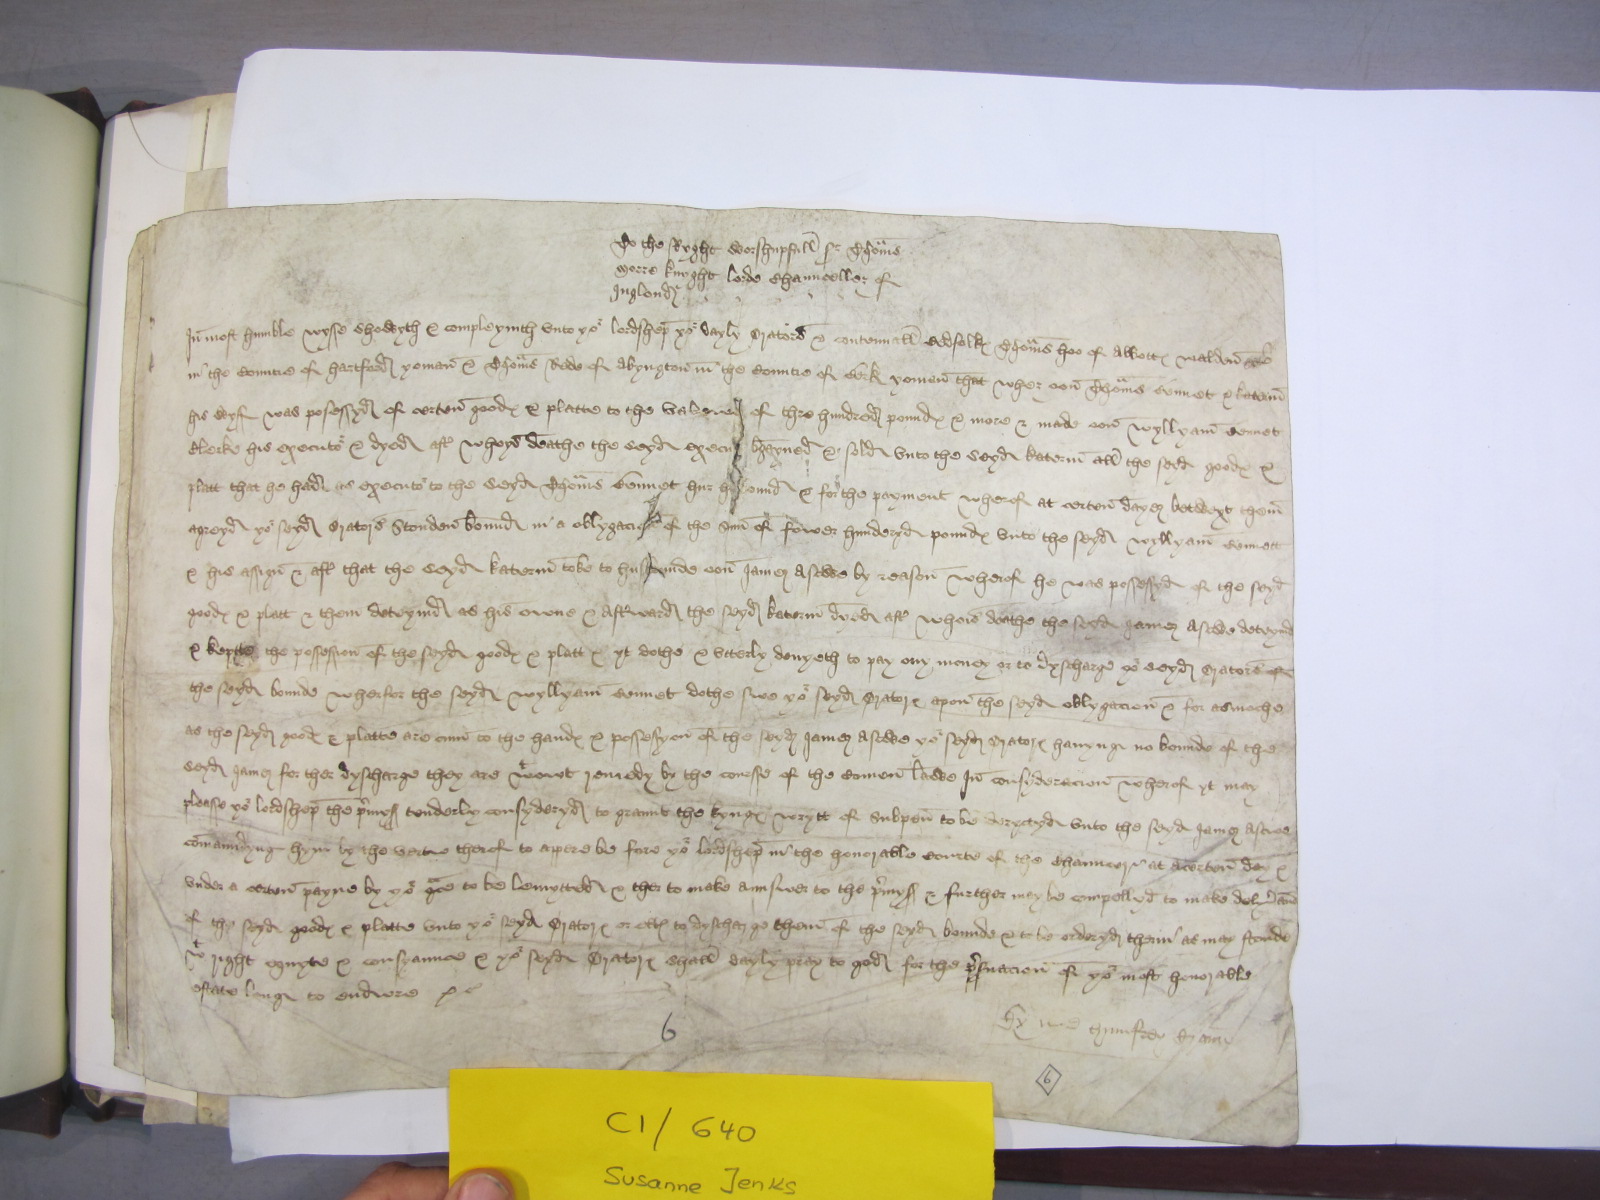 To the Ryght Worshupfull Sr Thomas
More knyght lorde Chaunceller of
Inglond
In most humble wysse Shewyth & compleynith vnto yor lordshep yor dayly Orators & contenuall Bedfolkes Thomas Hoo of Abbottes Walden
in the Countie of Hartford yoman & Thomas Rede of Abyngton in the Countie of Berk yoman that wher oon Thomas Bennet & katerin
his Wyff was possessyd of certen goodes & platte to the Valewe of thre hundred poundes & more & made oon Wyllyam Bennet
Clerke his executor & dyed aft whoys deathe the seyd execut bgayned & solde vnto the seyd katerin all the seyd goodes &
platt that he had as executor to the seyd Thomas Bennet hur husbound & for the payment wherof at certen dayes betwext them
agreyd yor seyd Orators Stonden bound in a oblygacion of the sum of fower hunderyd poundes vnto the seyd Wyllyam Bennett
& his assign & aft that the seyd katerin toke to husbunde oon James Ascwe by reason wherof he was possessyd of the seyd
goodes & platt & them deteynid as his owne & Aftward the seyd katerin dyed aft whois deathe the seyd James Ascwe deteynid
& kepte the possession of the seyd goodes & platt & yt dothe & vtterly denyeth to pay eny money or to dyscharge yor seyd Orators of
the seyd bounde wherfor the seyd Wyllyam Bennet dothe swe yor seyd Orators apon the seyd oblygacion & for asmoche
as the seyd goodes & platte are cum to the handes & possesyon of the seyd James Ascwe yor seyd Orators hauyng no bounde of the
seyd James for ther dyscharge they are wtowt remedy by the course of the comen lawe In consyderacion wherof yt may
please yor lordshep the pmyss tenderly consyderyd to graunte the kynges wrytt of Subpena to be deryctyd vnto the seyd James Ascwe
comaundyng hym by the vertue therof to appere be fore yor lordshep in the honorable Courte of the Chauncery at a certen day &
vnder a certen payne by yor gce to be lemytted & ther to make aunswer to the pmyss & further may be compellyd to make delyueraunce
of the seyd goodes & platte vnto yor seyd Orators or elles to dyscharge them of the seyd bounde & to be orderyd therin as may stonde
wt right equyte & consyance & yor seyd Orators shall dayly pray to god for the pseruacion of yor most honorable
estate longe to endure
6
By me Humfrey Brown
6
C1/640
Susanne Jenks